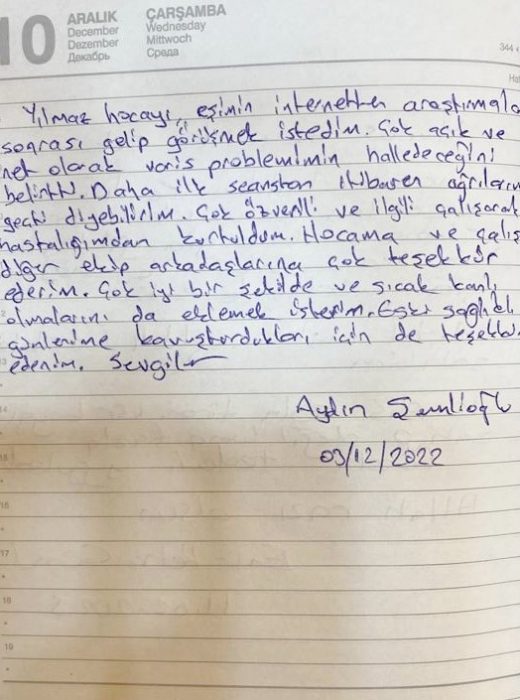 10
ARALIK
December
Dezember
Декабрь
ÇARŞAMBA
Wednesday
Mittwoch
Среда
344
Yılmaz hocayı, eşimin internetten araştırmala
sonrası gelip görüşmek istedim. Çok açık ve
net olarak varis problemimin halledeceğini
belirtti. Daha ilk seanstan itibaren ağrıların
geçti diyebilirim. Çok özverili ve ilgili çalışarak
hastalığımdan kurtuldum. Hocama ve çalış
diğer ekip arkadaşlarına çok teşekkür
ederim. Çok iyi bir şekilde ve sıcak kanlı
olmalarını da eklemek isterim. Eski sağlıklı
günlerime kavuşturdukları için de teşekkür
ederim. Sevgiler
Aydın
03/12/2022
14
15
16
17
18
19